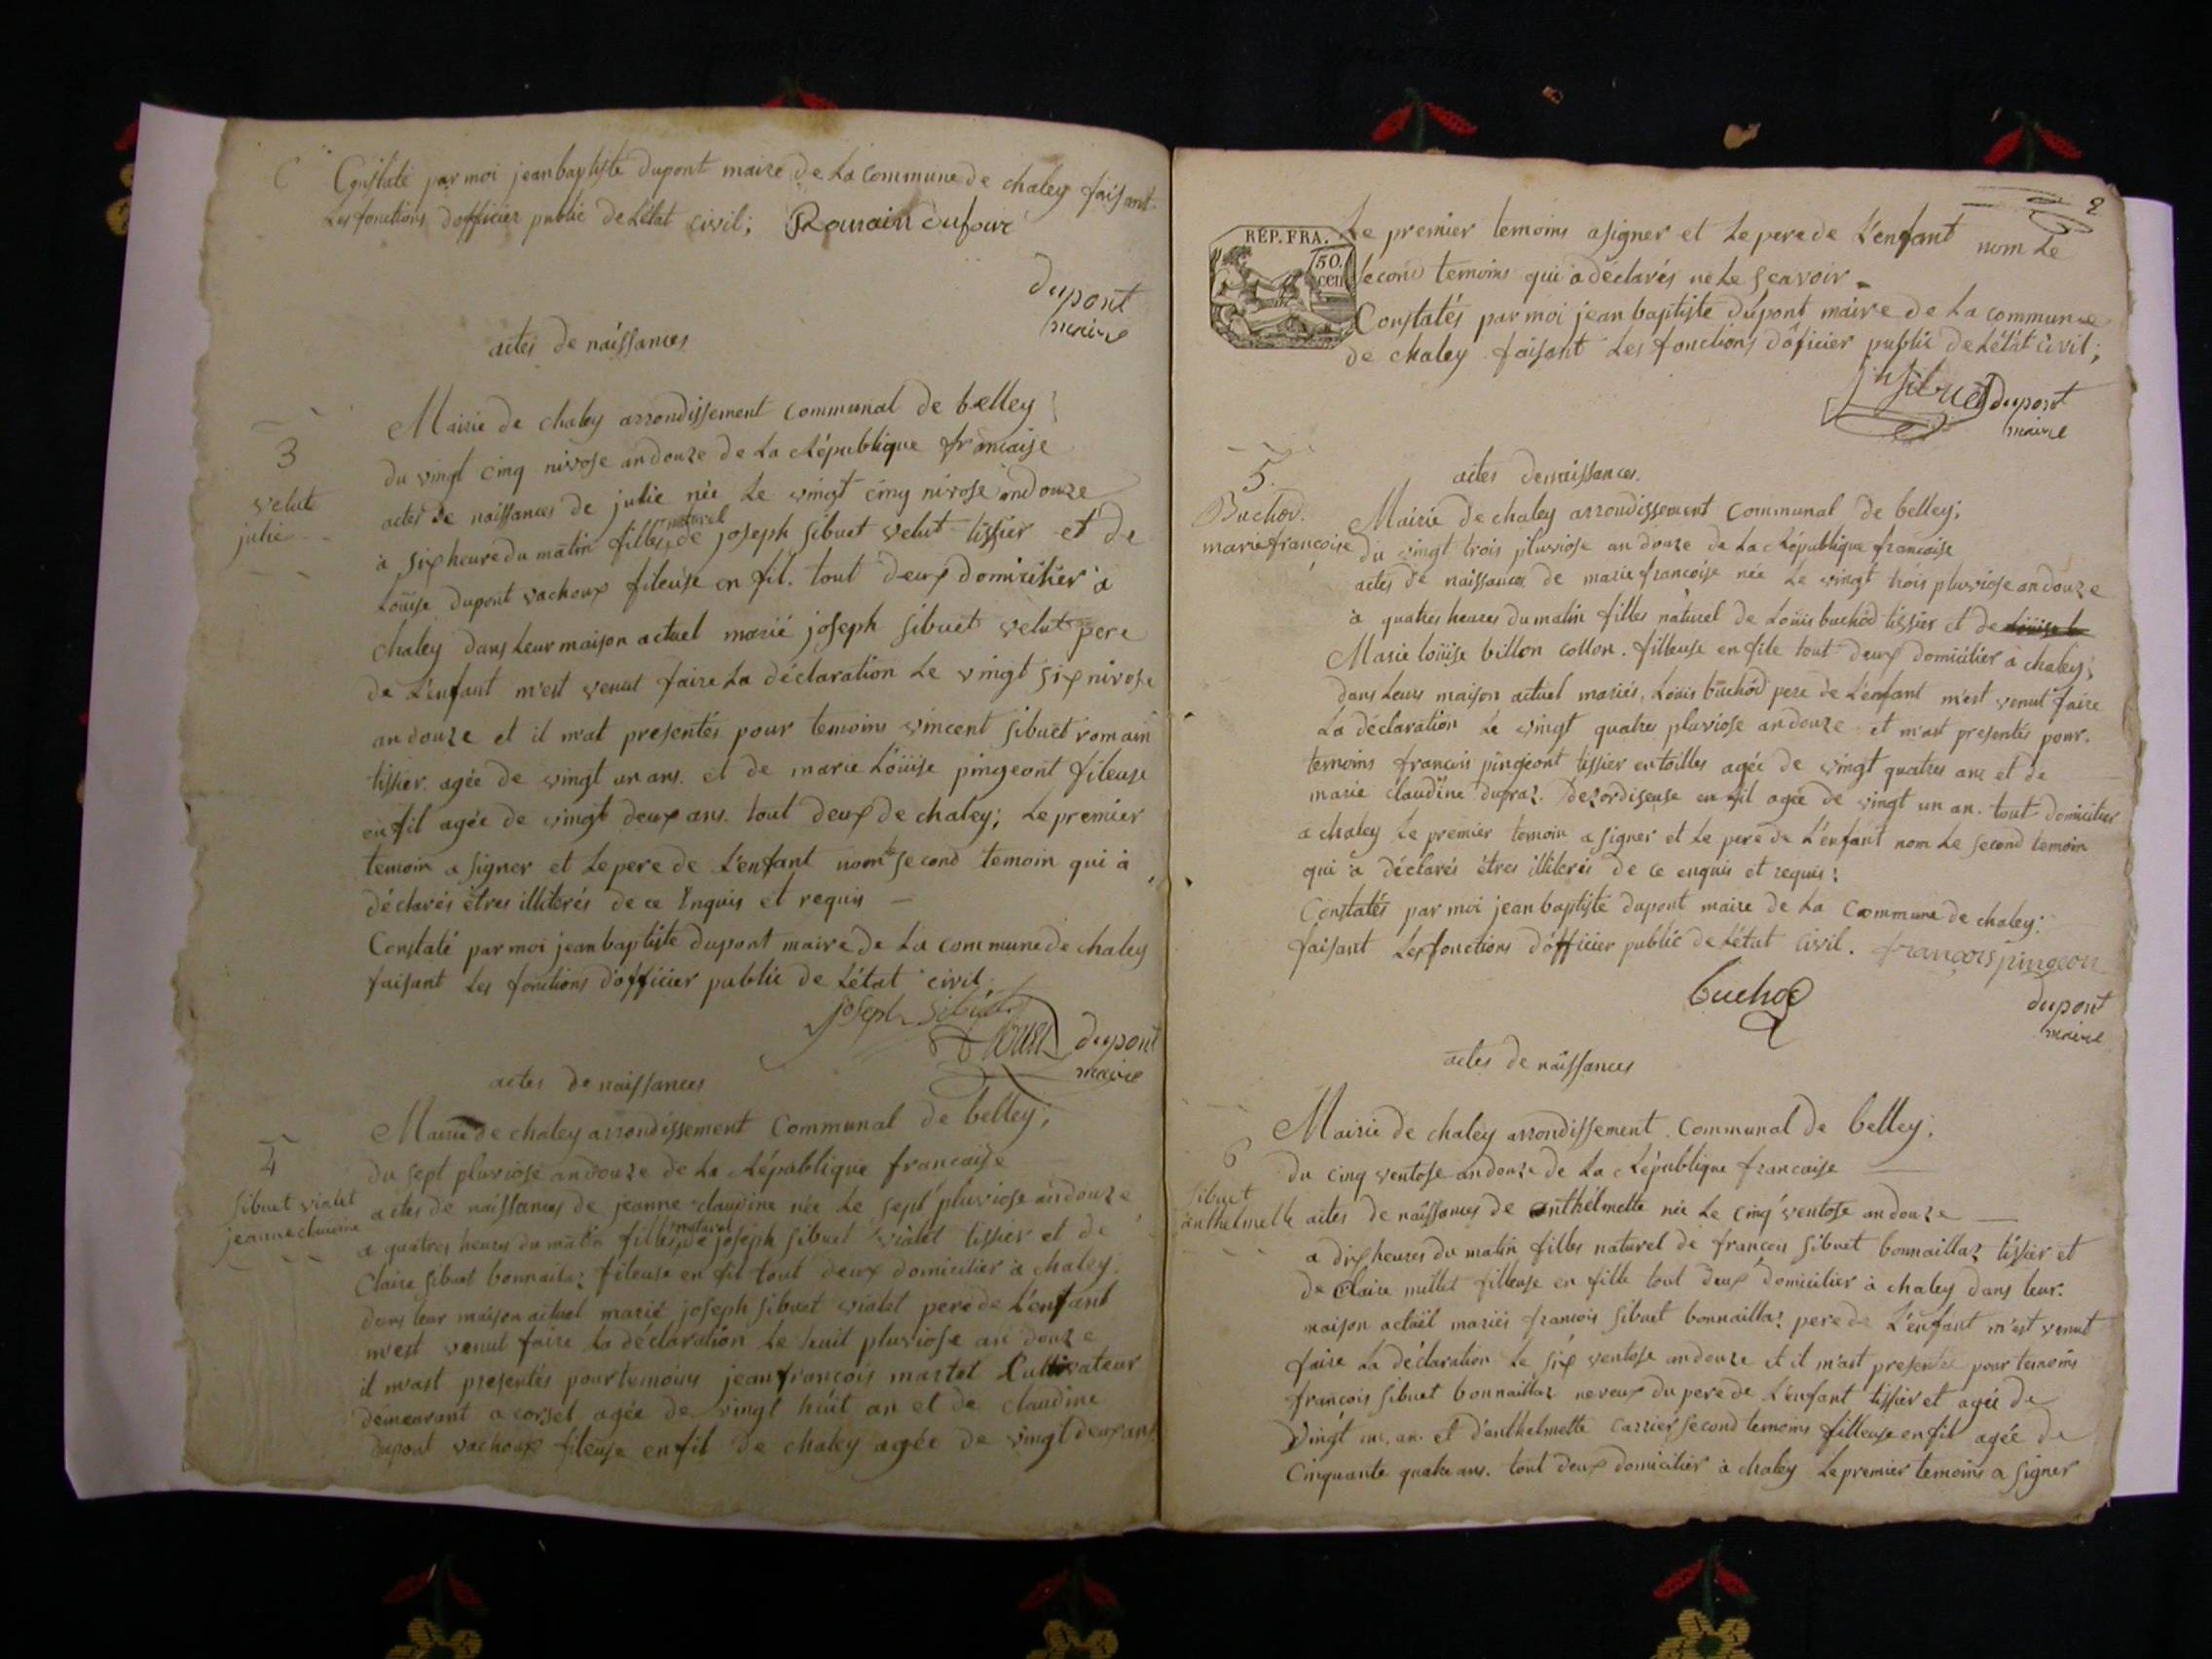 Constaté par moi jean baptiste dupont maire de La commune de chaley faisant
Les fonctions d'officier public de L'état civil; Romain dufour
dupont
maire
actes de naissances
3
velut
julie
Mairie de chaley arrondissement communal de belley
du vingt cinq nivose an douze de La République francaise
actes de naissances de julie née Le vingt cinq nivose an douze
à six heure du matin filles naturel de joseph sibuet velut tissier et de
Loüise dupont vachoux fileuse en fil. tout deux domicilier à
chaley dans Leur maison actuel marié joseph sibuet velut pere
de L'enfant m'est venut faire La déclaration Le vingt six nivose
an douze et il m'at presentés pour temoins vincent sibuet romain
tissier agée de vingt un ans. et de marie Loüise pingeont fileuse
en fil agée de vingt deux ans. tout deux de chaley; Le premier
temoin a signer et Le pere de L'enfant nom le second temoin qui à
déclarés êtres illiterés de ce Enquis et requis
Constaté par moi jean baptiste dupont maire de La commune de chaley
faisant Les fonctions d'officier public de L'état civil;
joseph sibuet
dupont
maire
actes de naissances
4
sibuet vialet
jeanne claudine
Mairie de chaley arrondissement Communal de belley;
du sept pluviose an douze de La République francaise
actes de naissances de jeanne claudine née Le sept pluviose an douze
a quatres heures du matin filles naturel de joseph sibuet vialet tissier et de
Claire sibuet bonnailaz fileuse en fil tout deux domicilier à chaley.
dans leur maison actuel marié joseph sibuet vialet pere de L'enfant
m'est venut faire La déclaration Le huit pluviose an douze
il m'ast presentés pour temoins jean francois martel Cultivateur
demeurant a corsel agée de vingt huit an et de claudine
dupont vachoux fileuse en fil de chaley agée de vingt deux ans
2
REP. FRA.
50.
cen
Le premier temoins a signer et Le pere de L'enfant nom Le
second temoins qui a déclarés ne Le scavoir.
Constatés par moi jean baptiste dupont maire de La commune
de chaley faisant Les fonctions d'oficier public de L'état civil;
sibuet dupont
maire
5.
Buchod.
marie françoise
actes de naissances.
Mairie de chaley arrondissement Communal de belley;
du vingt trois pluviose an douze de La République francaise
actes de naissances de marie francoise née Le vingt trois pluviose an douze
à quatres heures du matin filles naturel de Loüis buchod tissier et de
Marie loüise billon collon. filleuse en file tout deux domicilier à chaley;
dans Leurs maison actuel mariés, Louis buchod pere de L'enfant m'est venut faire
La déclaration Le vingt quatres pluviose an douze et m'ast presentés pour.
temoins francois pingeont tissier en toilles agée de vingt quatres ans et de
marie claudine dupraz. dezordiseuse en fil agée de vingt un an. tout domicilier
a chaley Le premier temoin a signer et Le pere de L'enfant nom Le second temoin
qui à déclarés êtres illiterés de ce enquis et requis:
Constatés par moi jean baptiste dupont maire de La Commune de chaley:
faisant Les fonctions d'officier public de L'état civil. françois pingeon
buchod
dupont
maire
actes de naissances
6
sibuet
anthelmette
Mairie de chaley arrondissement. Communal de belley;
du cinq ventose an douze de La République francaise
actes de naissances de anthelmette née Le cinq ventose an douze
a dix heures du matin filles naturel de francois sibuet bonnaillaz tissier et
de Claire millet filleuse en fille tout deux domicilier à chaley dans leur.
maison actuël mariés francois sibuet bonnaillaz pere de L'enfant m'est venut
faire La déclaration Le six ventose an douze et il m'ast presentés pour temoins
francois sibuet bonnaillaz neveux du pere de L'enfant tissier et agée de
Vingt un. an. et d'anthelmette carrier second temoins filleuse en fil agée de
Cinquante quatre ans. tout deux domicilier à chaley Le premier temoins a signer